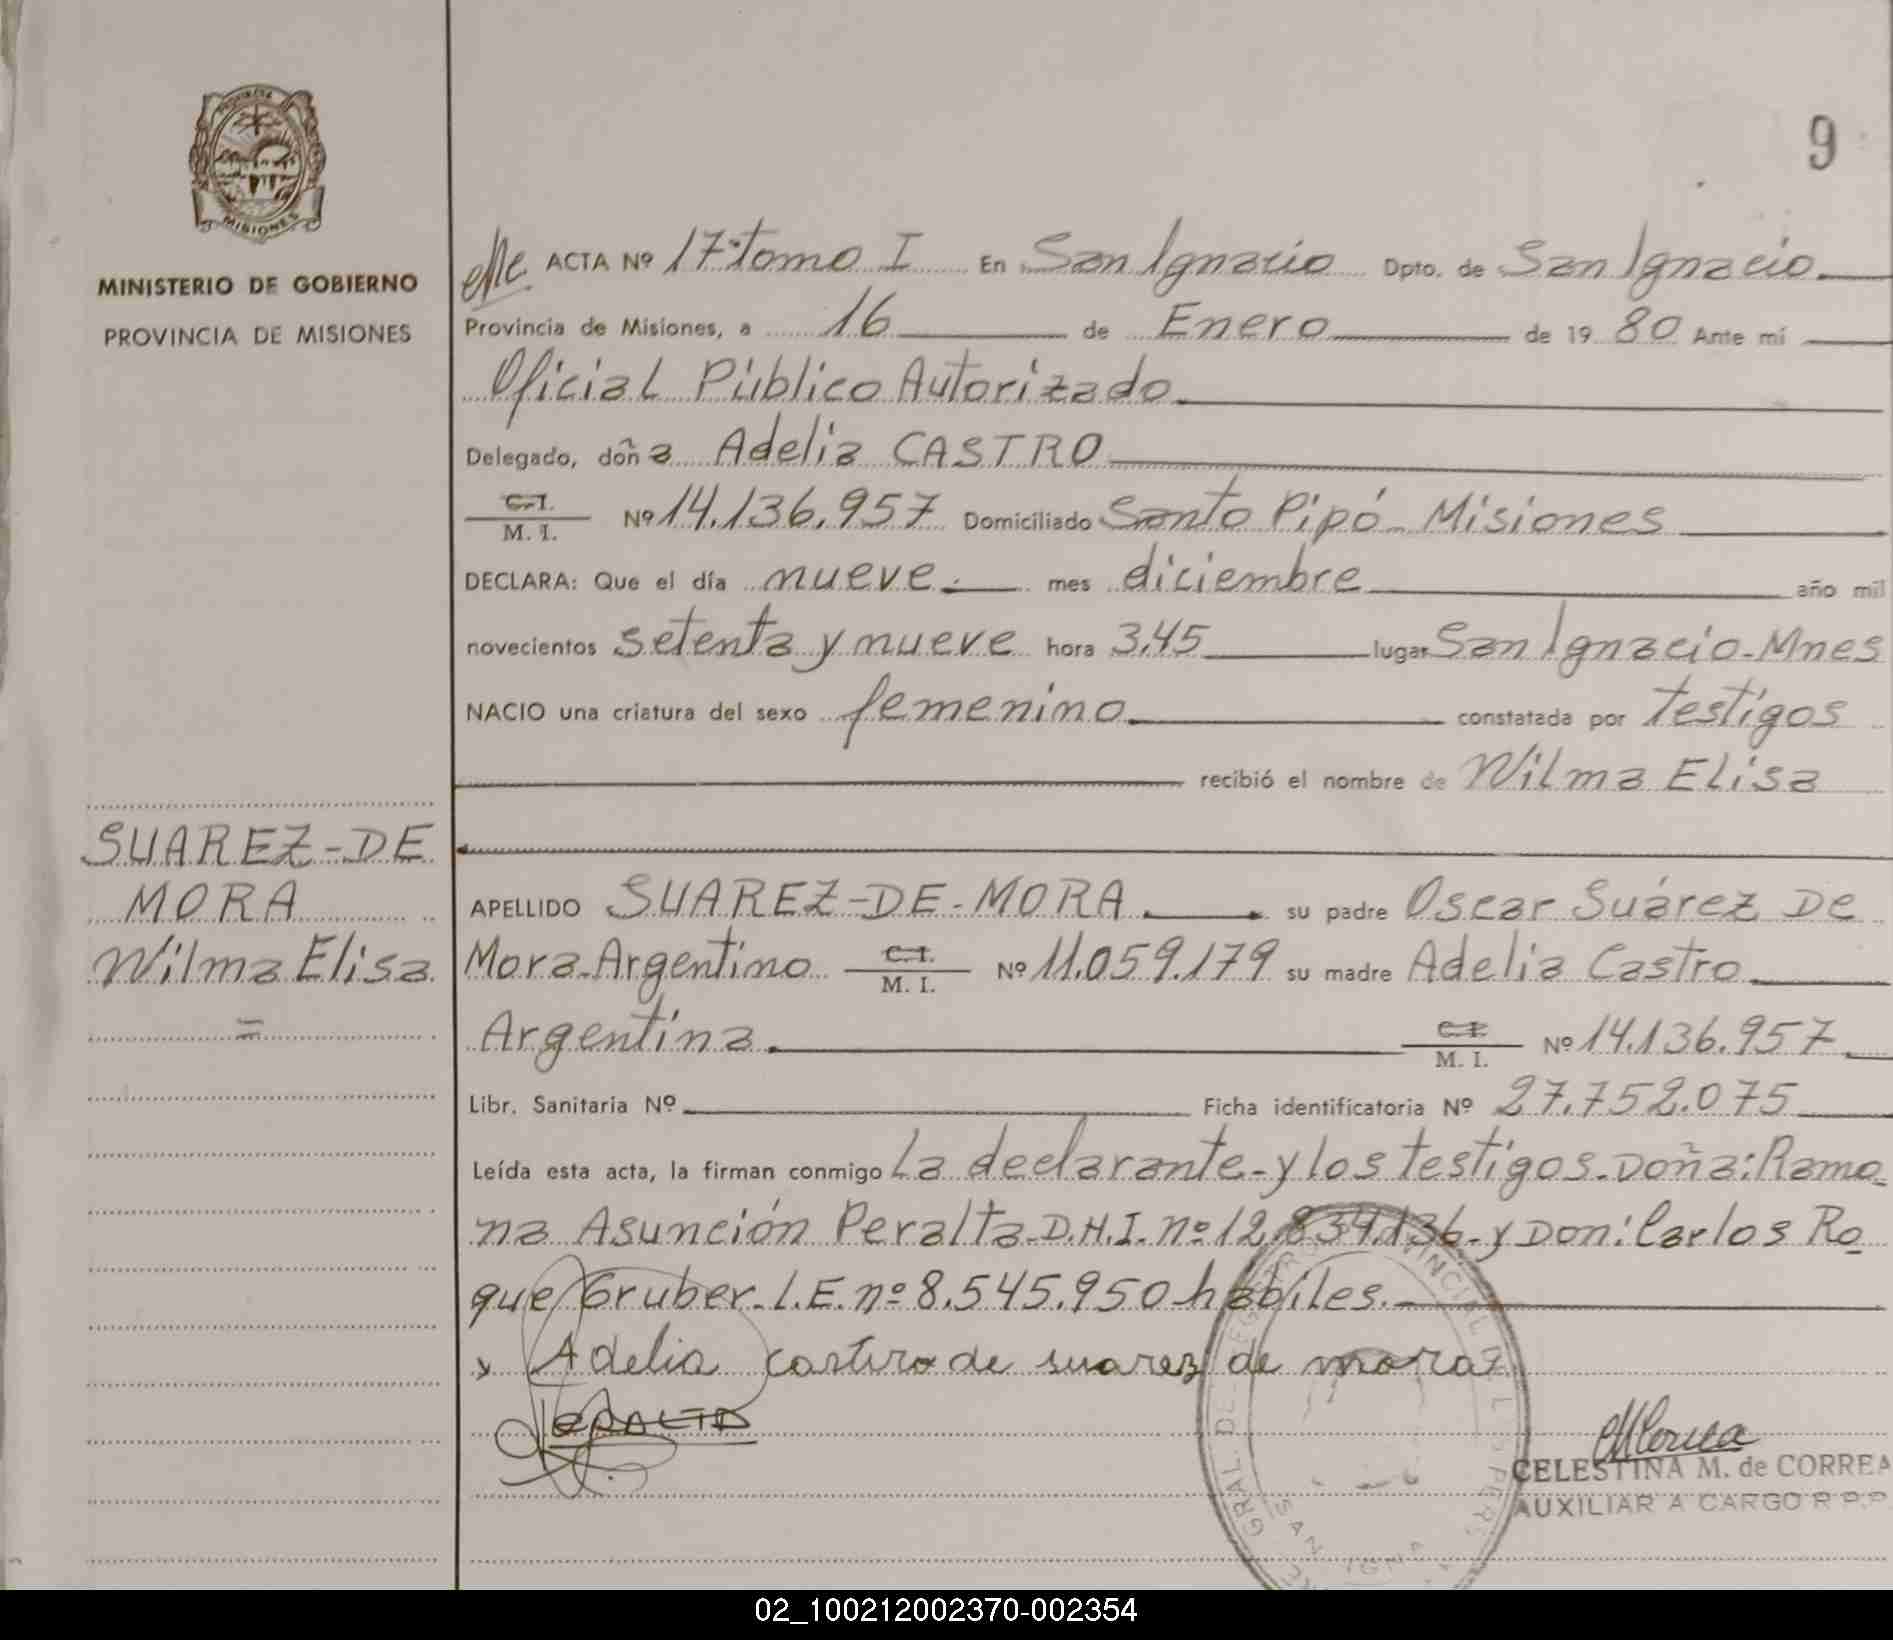 PROVINCIA
MISIONES
MINISTERIO DE GOBIERNO
PROVINCIA DE MISIONES
SUAREZ-DE
MORA
Wilma Elisa
=
9
ACTA Nº 17-tomo I En San Ignacio Dpto. de San Ignacio
Provincia de Misiones, a 16 de Enero de 19 80 Ante mí
Oficial Público Autorizado
Delegado, doña Adelia CASTRO
C.I.
M. I. Nº 14.136.957 Domiciliado Santo Pipó - Misiones
DECLARA: Que el día nueve.- mes diciembre año mil
novecientos setenta y nueve hora 3,45 lugar San Ignacio-Mnes
NACIO una criatura del sexo femenino constatada por testigos
recibió el nombre de Wilma Elisa
APELLIDO SUAREZ-DE-MORA su padre Oscar Suárez De
Mora-Argentino C.I.
M. I. Nº 11.059.179 su madre Adelia Castro
Argentina. C.I.
M. I. Nº 14.136.957
Libr. Sanitaria Nº Ficha identificatoria Nº 27.752.075
Leída esta acta, la firman conmigo La declarante-y los testigos-Doña: Ramo-
na Asunción Peralta-D.N.I. nº 12.834.136-y Don: Carlos Ro-
que Gruber-L.E. nº 8.545.950 hábiles.-
Adelia castro de suarez de mora
PERALTA
CELESTINA M. de CORREA
AUXILIAR A CARGO R P.P
02_100212002370-002354